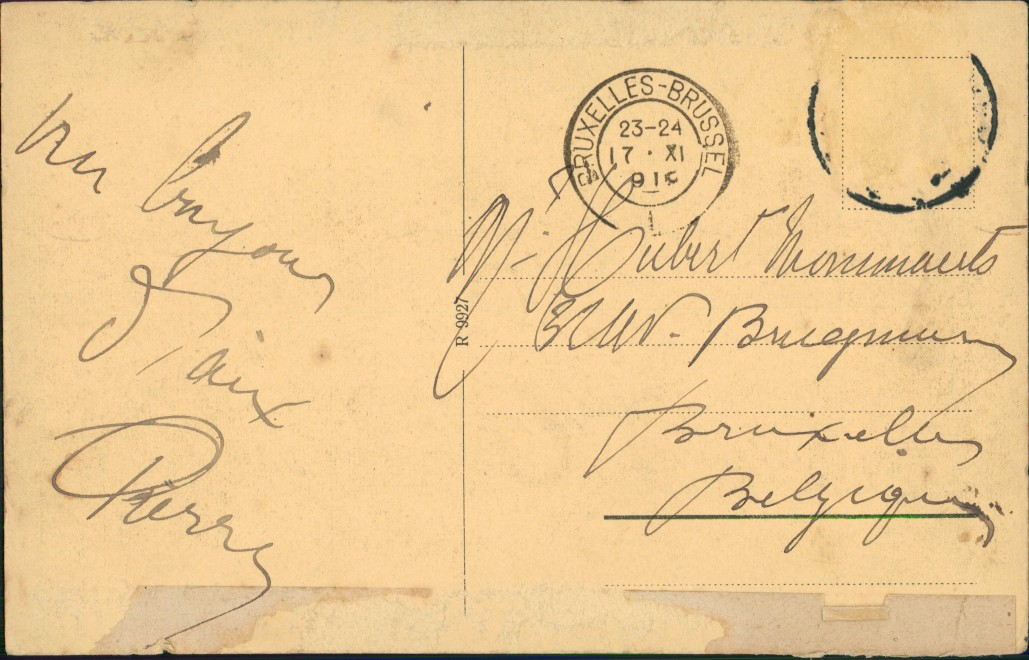 un bonjour
d'aix
Pierre
BRUXELLES-BRUSSEL
23-24
17 · XI
1
R 9927
Mr Hubert Mommaerts
Av. Brugmann
Bruxelles
Belgique